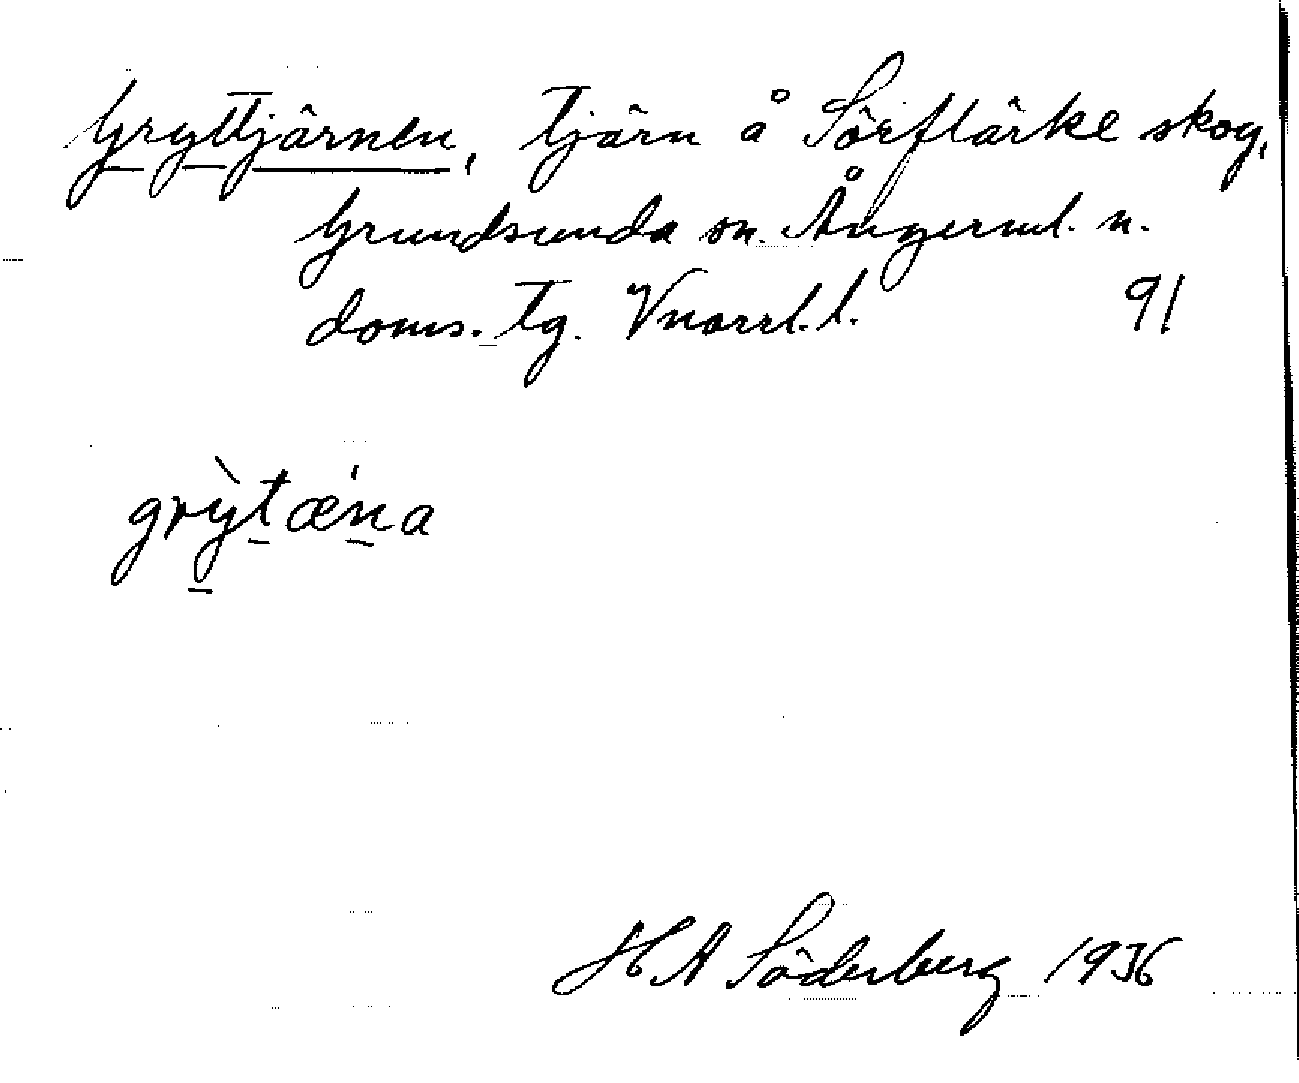 Gryttjärnen, Tjärn å Sörflärke skog,
Grundsunda sn. Ångerml. n.
doms. tg. Vnorrl. l. 91
grỳ̠t̠æ'n̠a
H A Söderberg 1936